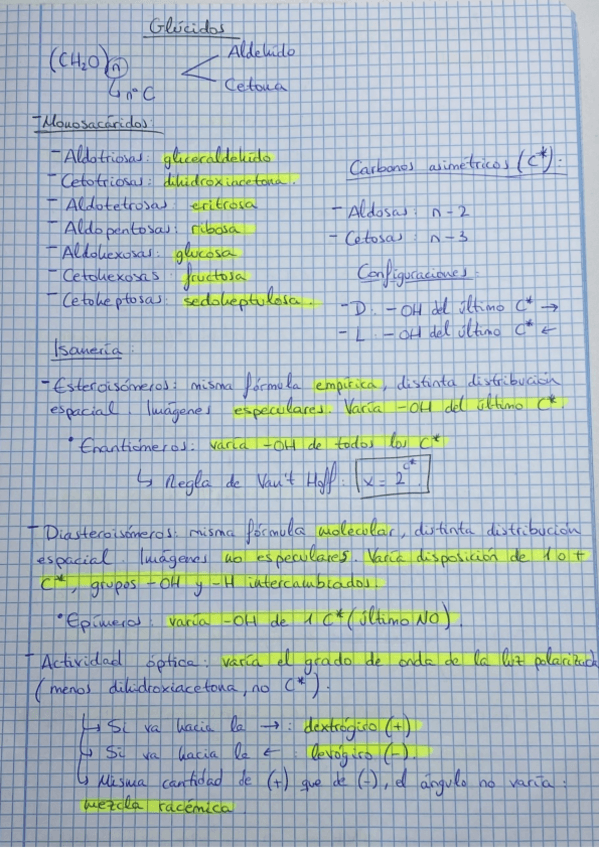 Glúcidos
(CH₂O)n
Aldehído
Cetona
↳ nº C
- Monosacáridos:
- Aldotriosas: gliceraldehído
- Cetotriosas: dihidroxiacetona.
- Aldotetrosas: eritrosa
- Aldopentosas: ribosa
- Aldohexosas: glucosa
- Cetohexosas: fructosa
- Cetoheptosas: sedoheptulosa.
Carbonos asimétricos (C*):
- Aldosas: n-2
- Cetosas: n-3
Configuraciones:
- D: -OH del último C* →
- L: -OH del último C* ←
Isomería:
- Esteroisómeros: misma fórmula empírica, distinta distribución
espacial. Imágenes especulares. Varía -OH del último C*.
• Enantiómeros: varía -OH de todos los C*
↳ Regla de Van't Hoff: x = 2^C*
- Diasteroisómeros: misma fórmula molecular, distinta distribución
espacial. Imágenes no especulares. Varía disposición de 1 o +
C*, grupos -OH y -H intercambiados.
• Epímeros: varía -OH de 1 C* (último NO).
- Actividad óptica: varía el grado de onda de la luz polarizada
(menos dihidroxiacetona, no C*).
↳ Si va hacia la →: dextrógiro (+)
↳ Si va hacia la ←: levógiro (-).
↳ Misma cantidad de (+) que de (-), el ángulo no varía:
mezcla racémica.